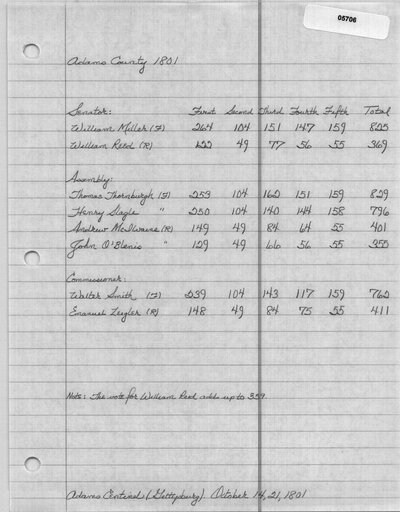 05706
Adams County 1801
Senator: First Second Third Fourth Fifth Total
William Miller (F) 264 104 151 147 159 825
William Reed (R) 122 49 77 56 55 369
Assembly:
Thomas Thornburgh (F) 253 104 162 151 159 829
Henry Slagle " 250 104 140 144 158 796
Andrew McIlwaine (R) 149 49 84 64 55 401
John O'Blenis " 129 49 66 56 55 355
Commissioner:
Walter Smith (F) 239 104 143 117 159 762
Emanuel Zeigler (R) 148 49 84 75 55 411
Note: The vote for William Reed adds up to 359.
Adams Centinel (Gettysburg). October 14, 21, 1801